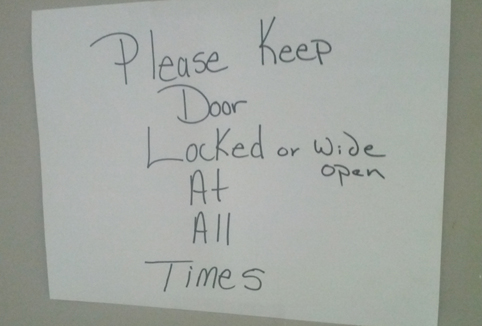 Please Keep
Door
Locked or Wide
open
At
All
Times